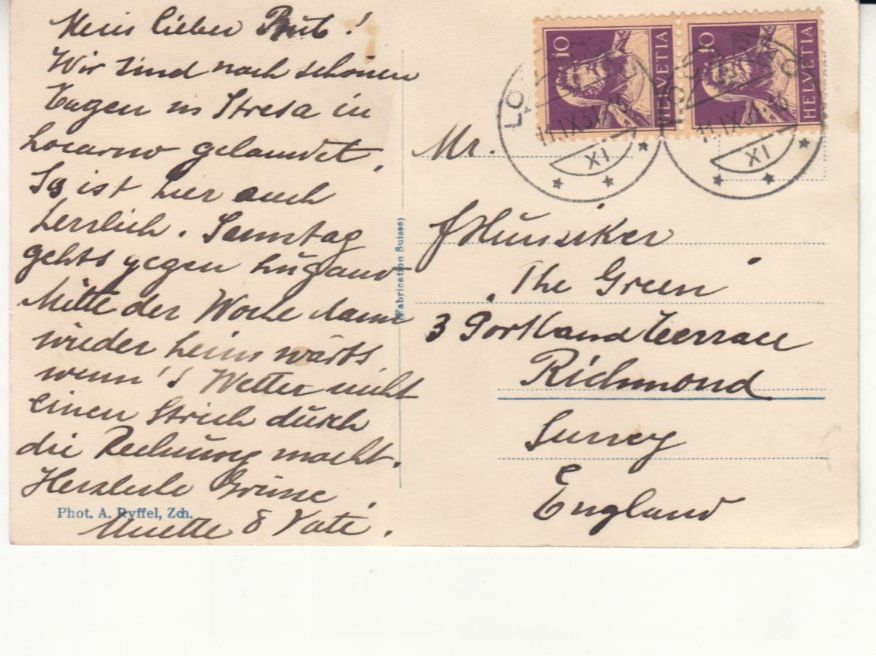 Mein lieber Bub!
Wir sind nach schönen
Tagen in Stresa in
Locarno gelandet.
Es ist hier auch
herrlich. Samstag
gehts gegen Lugano
Mitte der Woche dann
wieder heimwärts
wenn's Wetter nicht
einen Strich durch
die Rechnung macht.
Herzliche Grüsse
Muetti & Vati.
Phot. A. Ryffel, Zch.
(Fabrication Suisse)
10 HELVETIA
10 HELVETIA
LO
11.IX.
XI
11.IX.
XI
Mr.
J Hunziker
"The Green"
3 Portland Terrace
Richmond
Surrey
England